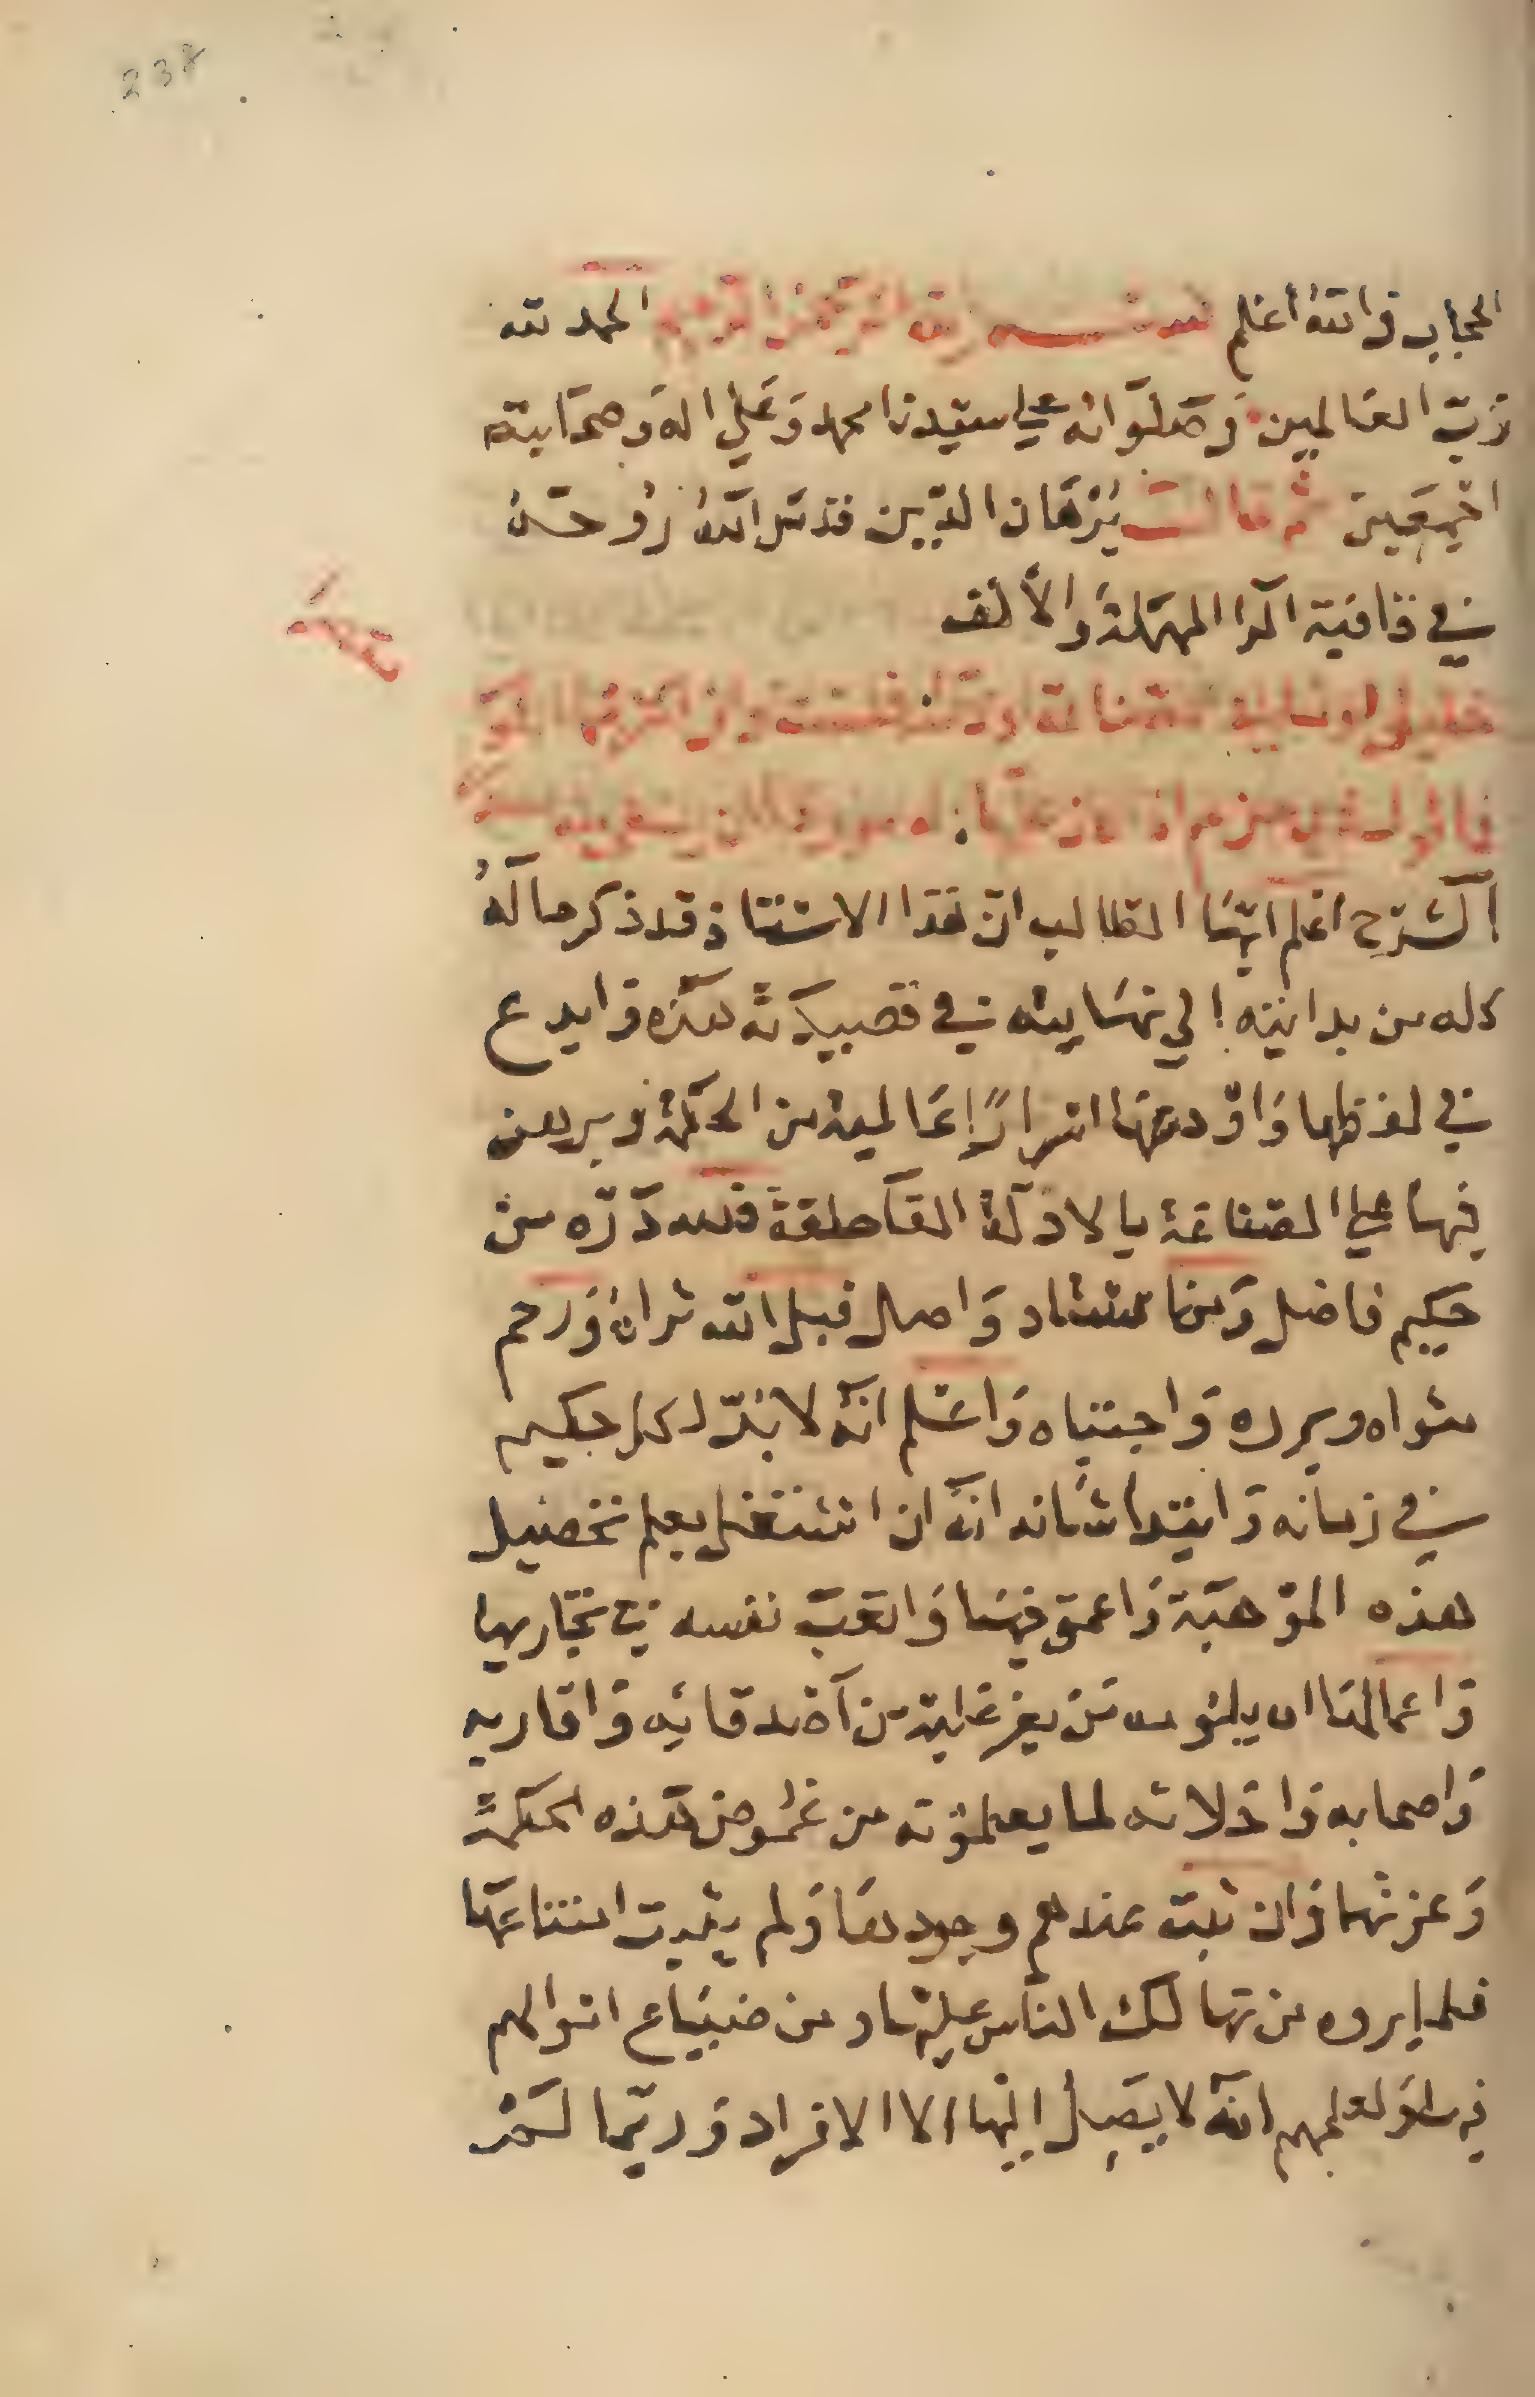 238
الحجاب والله أعلم بسم الله الرحمن الرحيم الحمد لله
رب العالمين وصلواته على سيدنا محمد وعلى اله وصحابته
اجمعين ثم قال برهان الدين قدس الله روحه
في قافية الرا المهملة والألف
الشرح اعلم ايها الطالب ان هذا الاستاذ قد ذكر حاله
كله من بدايته إلى نهايته في قصيدته هذه وابدع
في لفظها واودعها اسرارًا عالمية من الحكمة وبرهن
فيها على الصناعة بالادلة القاطعة فلله دره من
حكيم فاضل ومن استاد واصل فبل الله ثراه ورحم
مثواه وبرده واجتباه واعلم انه لا بد لكل حكيم
في زمانه وابتدا شانه انه ان اشتغل بعلم تحصيل
هذه الموهبة واعمق فيها واتعب نفسه في تجاربها
واعمالها ان يلومه من يعز عليه من أصدقائه واقاربه
واصحابه واخلائه لما يعلمونه من غموض هذه الحكمة
وعزتها وان ثبت عندهم وجودها ولم يثبت امتناعها
فلما يروه من تهالك الناس عليها ومن ضياع اموالهم
لعلمهم انه لا يصل اليها الا الافراد وربما